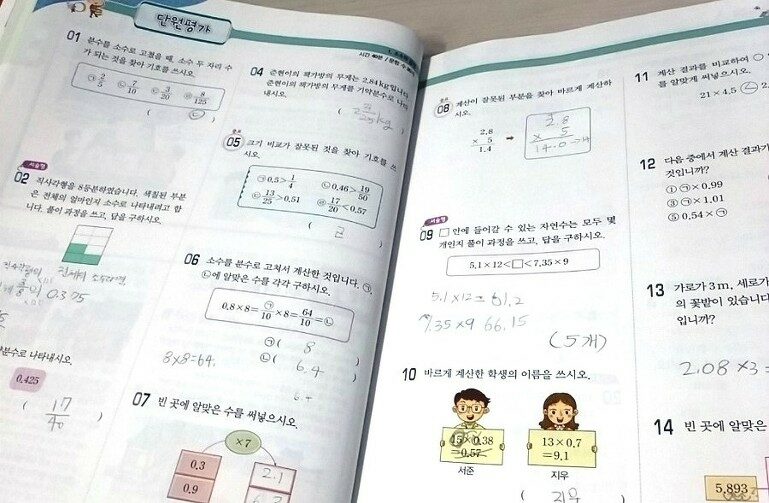 단원평가
01 분수를 소수로 고쳤을 때, 소수 두 자리 수
가 되는 것을 찾아 기호를 쓰시오.
㉠ 2/5 ㉡ 7/10 ㉢ 3/20 ㉣ 8/125
서술형
02 직사각형을 8등분하였습니다. 색칠된 부분
은 전체의 얼마인지 소수로 나타내려고 합
니다. 풀이 과정을 쓰고, 답을 구하시오.
0.375
분수로 나타내시오.
0.425
( 17/40 )
04 준현이의 책가방의 무게는 2.84 kg입니다.
준현이의 책가방의 무게를 기약분수로 나타
내시오.
중요
05 크기 비교가 잘못된 것을 찾아 기호를 쓰
시오.
㉠ 0.5 > 1/4 ㉡ 0.46 > 19/50
㉢ 13/25 > 0.51 ㉣ 17/20 < 0.57
06 소수를 분수로 고쳐서 계산한 것입니다. ㉠,
㉡에 알맞은 수를 각각 구하시오.
0.8×8= ㉠/10 ×8= 64/10 =㉡
㉠ ( 8 )
8×8=64.
㉡ ( 6.4 )
07 빈 곳에 알맞은 수를 써넣으시오.
×7
0.3 2.1
0.9
중요
08 계산이 잘못된 부분을 찾아 바르게 계산하
시오.
2.8
× 5
1.4
➡
2.8
× 5
14.0
서술형
09 □ 안에 들어갈 수 있는 자연수는 모두 몇
개인지 풀이 과정을 쓰고, 답을 구하시오.
5.1×12<□<7.35×9
5.1×12= 61.2
7.35×9 66.15
(5개)
10 바르게 계산한 학생의 이름을 쓰시오.
15×0.38
=0.57
서준
13×0.7
=9.1
지우
( 지우
11 계산 결과를 비교하여 ○
를 알맞게 써넣으시오.
21×4.5
12 다음 중에서 계산 결과가
것입니까?
① ㉠×0.99
③ ㉠×1.01
⑤ 0.54×㉠
13 가로가 3 m, 세로가
의 꽃밭이 있습니다
입니까?
2.08×3=
14 빈 곳에 알맞은
5.893